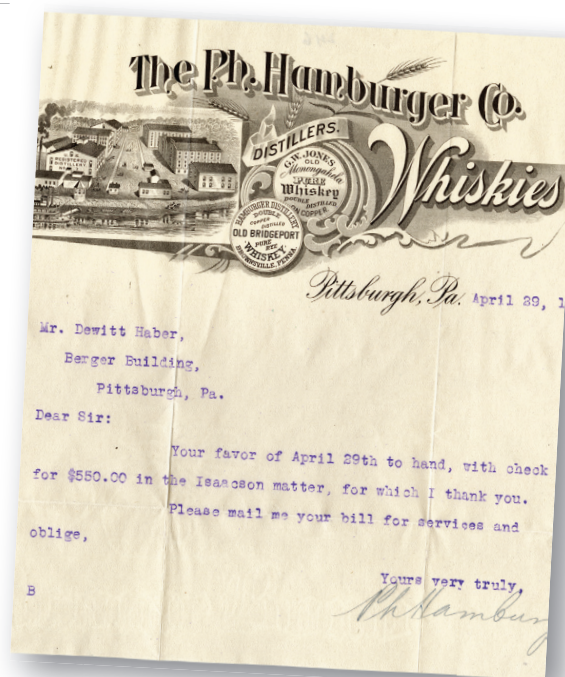 The Ph. Hamburger Co.
DISTILLERS.
Whiskies
REGISTERED
DISTILLERY
G.W. JONES
OLD
Monongahela
PURE
Whiskey
DOUBLE DISTILLED
ON COPPER
HAMBURGER DISTILLERY
DOUBLE
COPPER
DISTILLED
OLD BRIDGEPORT
PURE
RYE
WHISKEY
BROWNSVILLE, PENNA.
Pittsburgh, Pa. April 29, 1
Mr. Dewitt Haber,
Berger Building,
Pittsburgh, Pa.
Dear Sir:
Your favor of April 29th to hand, with check
for $550.00 in the Isaacson matter, for which I thank you.
Please mail me your bill for services and
oblige,
Yours very truly,
B
Ph Hambur